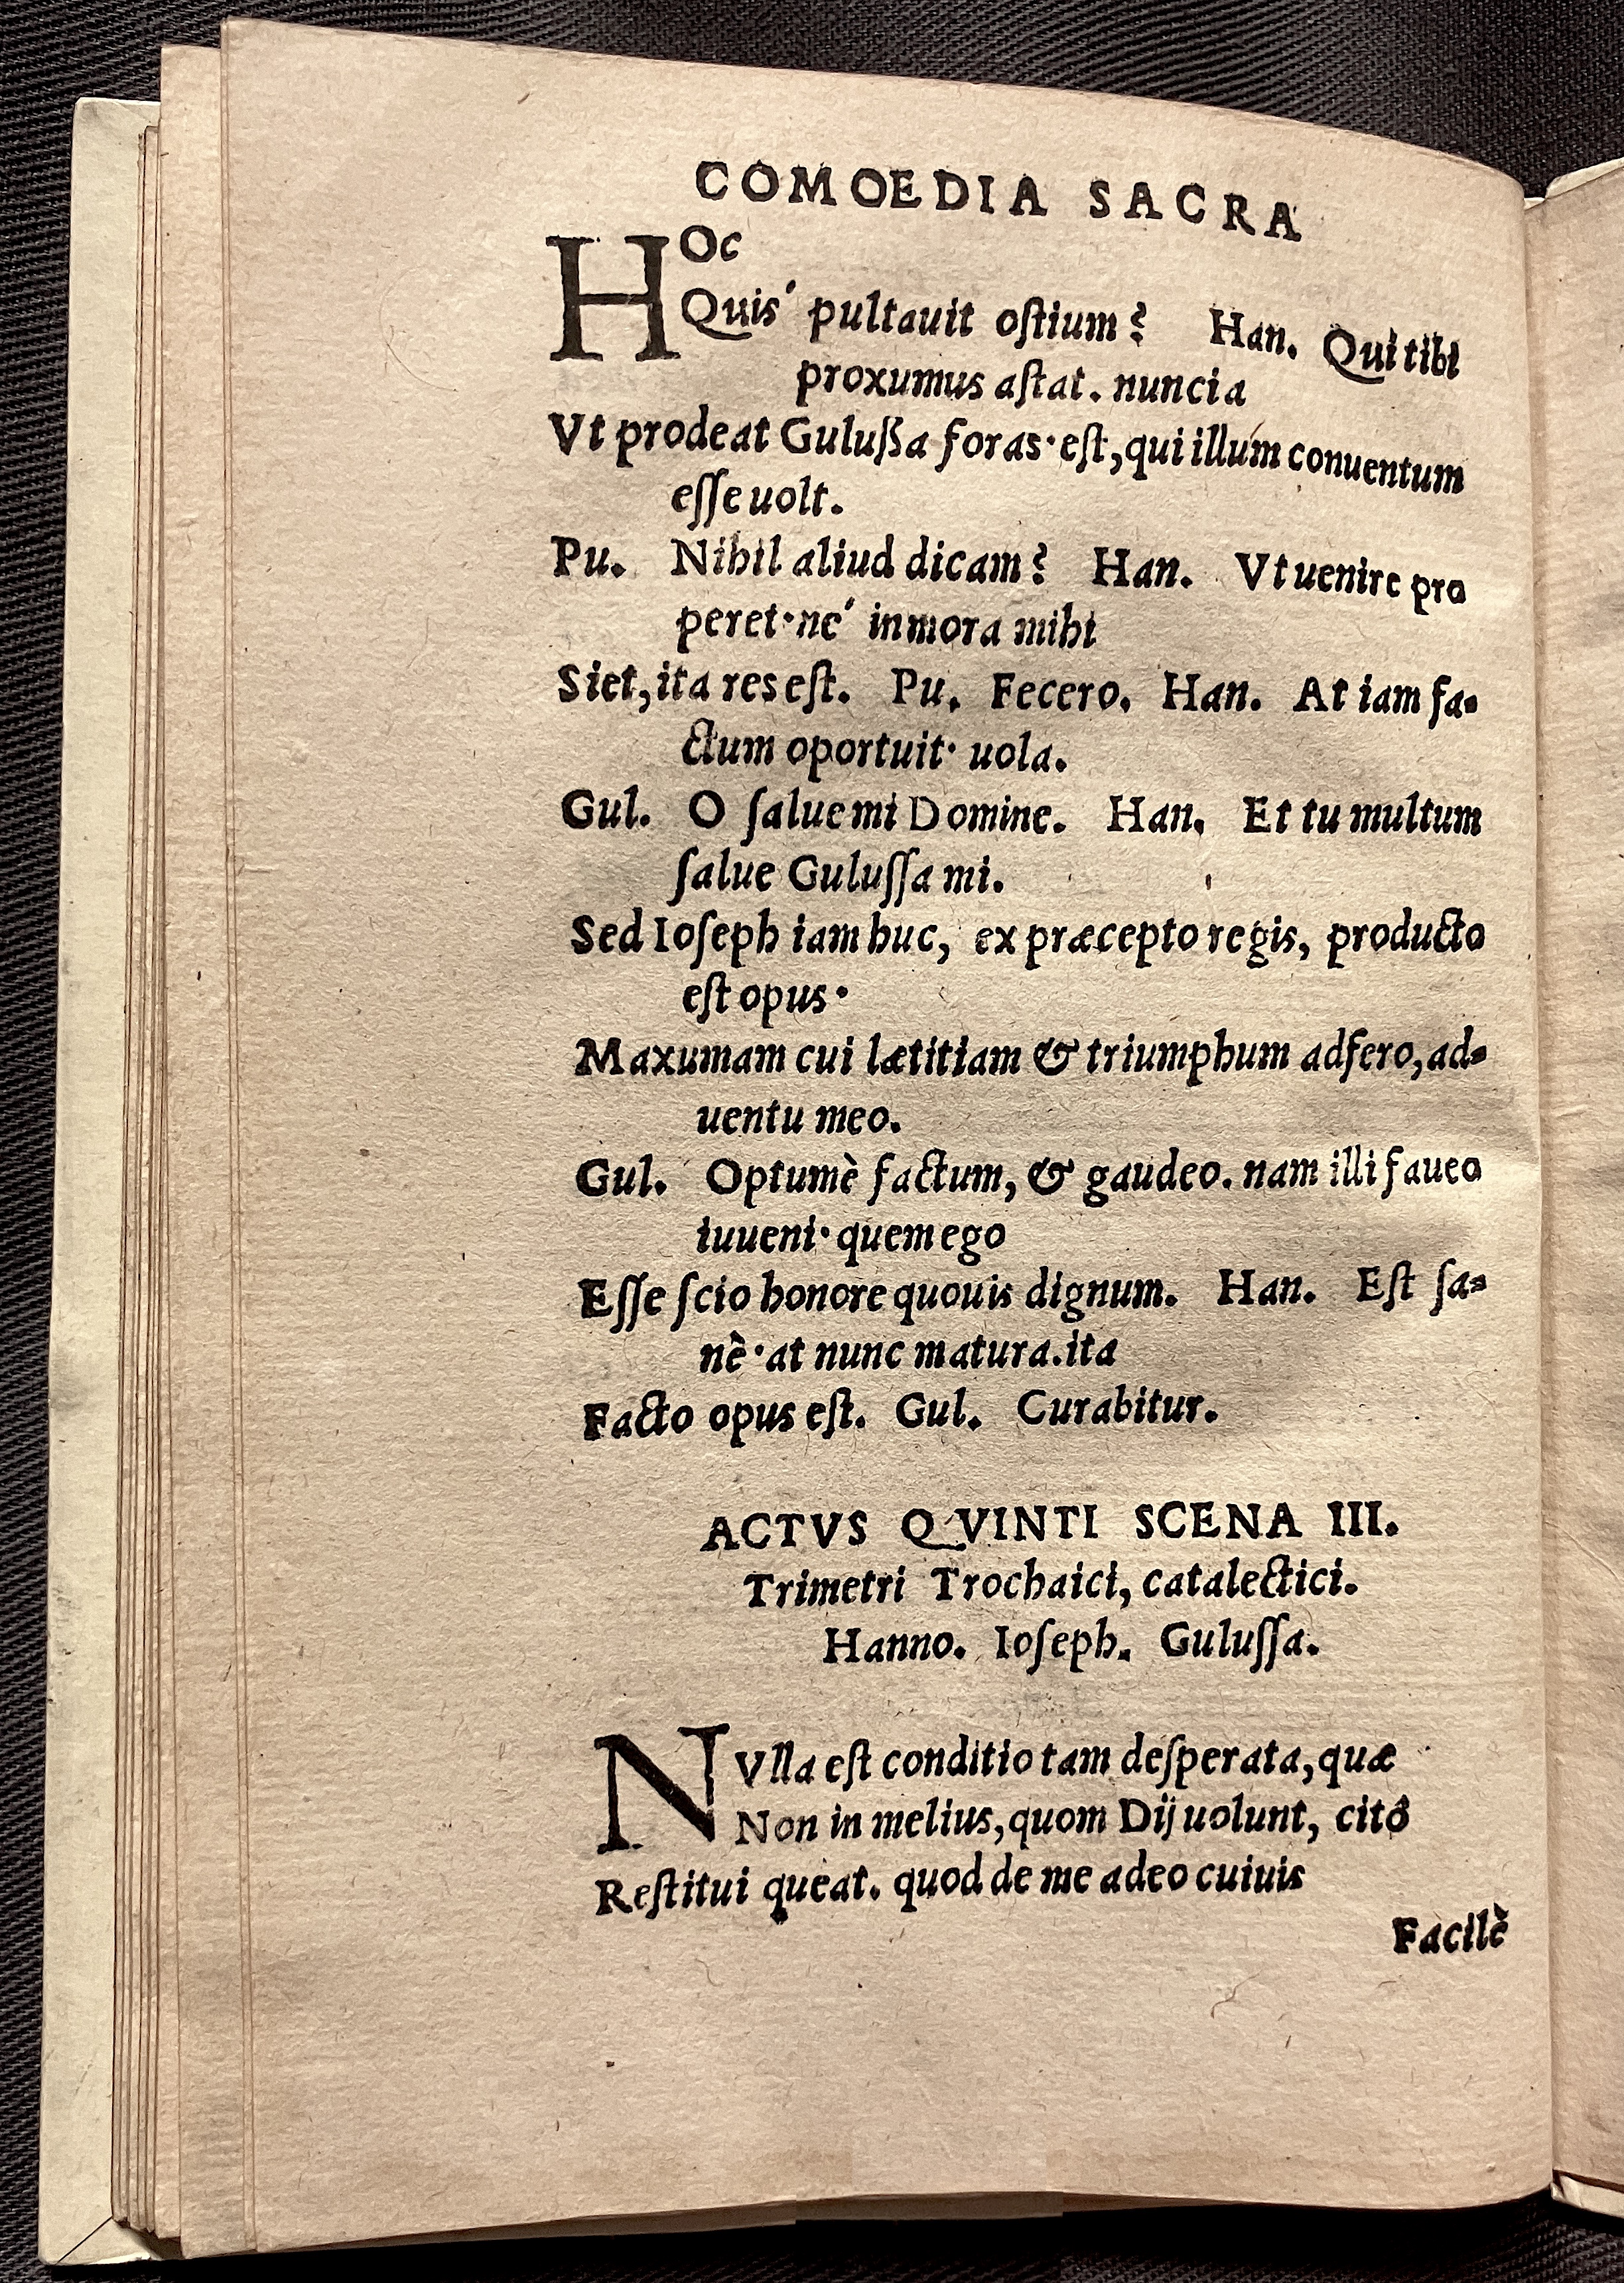 COMOEDIA SACRA
HOc
Quis' pultauit oſtium? Han. Qui tibi
proxumus aſtat. nuncia
Vt prodeat Guluſſa foras· eſt, qui illum conuentum
eſſe uolt.
Pu. Nihil aliud dicam? Han. Vt uenire pro
peret· ne' in mora mihi
Siet, ita res eſt. Pu. Fecero. Han. At iam fa-
ctum oportuit· uola.
Gul. O ſalue mi Domine. Han. Et tu multum
ſalue Guluſſa mi.
Sed Ioſeph iam huc, ex præcepto regis, producto
eſt opus·
Maxumam cui lætitiam & triumphum adfero, ad-
uentu meo.
Gul. Optumè factum, & gaudeo. nam illi faueo
iuueni· quem ego
Eſſe ſcio honore quouis dignum. Han. Eſt ſa-
nè· at nunc matura. ita
Facto opus eſt. Gul. Curabitur.
ACTVS QVINTI SCENA III.
Trimetri Trochaici, catalectici.
Hanno. Ioſeph. Guluſſa.
NVlla eſt conditio tam deſperata, quæ
Non in melius, quom Dij uolunt, citô
Reſtitui queat. quod de me adeo cuiuis
Facilè